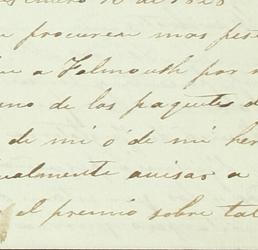 de 1828
procuren mas
a Falmouth por
uno de los paquetes d
de mi ó de mi her
ualmente avisar a
el premio sobre tal